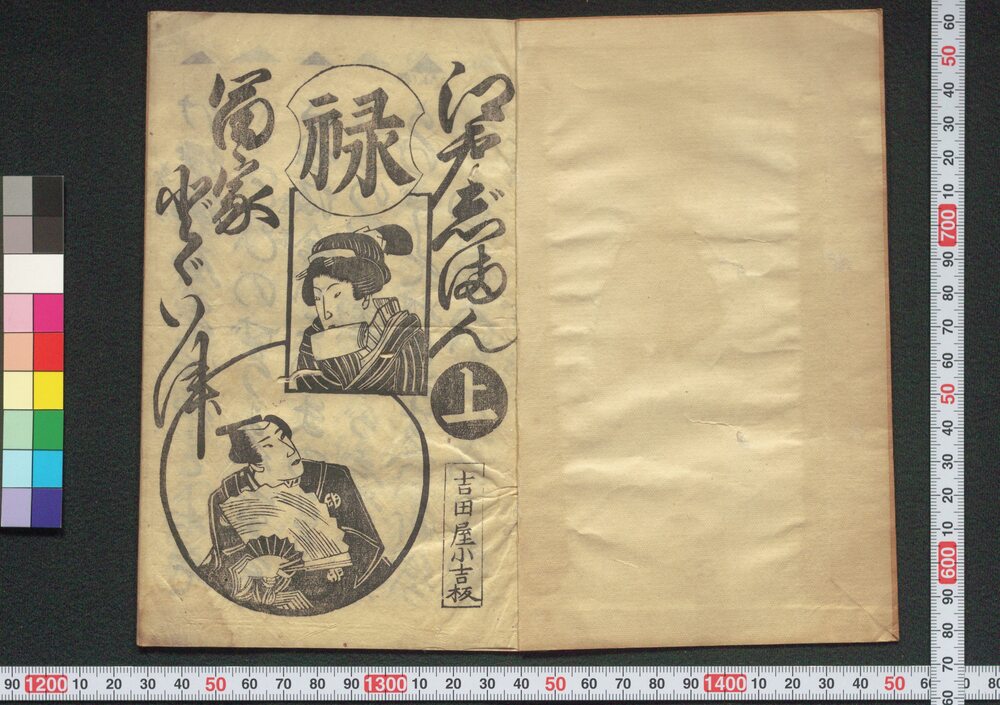 江戸じまん
上
吉田屋小吉板
禄
冨家
どゞいつ
60 50 40 30 20 10 700 90 80 70 60 50 40 30 20 10 600 90 80 70 60
90 1200 10 20 30 40 50 60 70 80 90 1300 10 20 30 40 50 60 70 80 90 1400 10 20 30 40 50